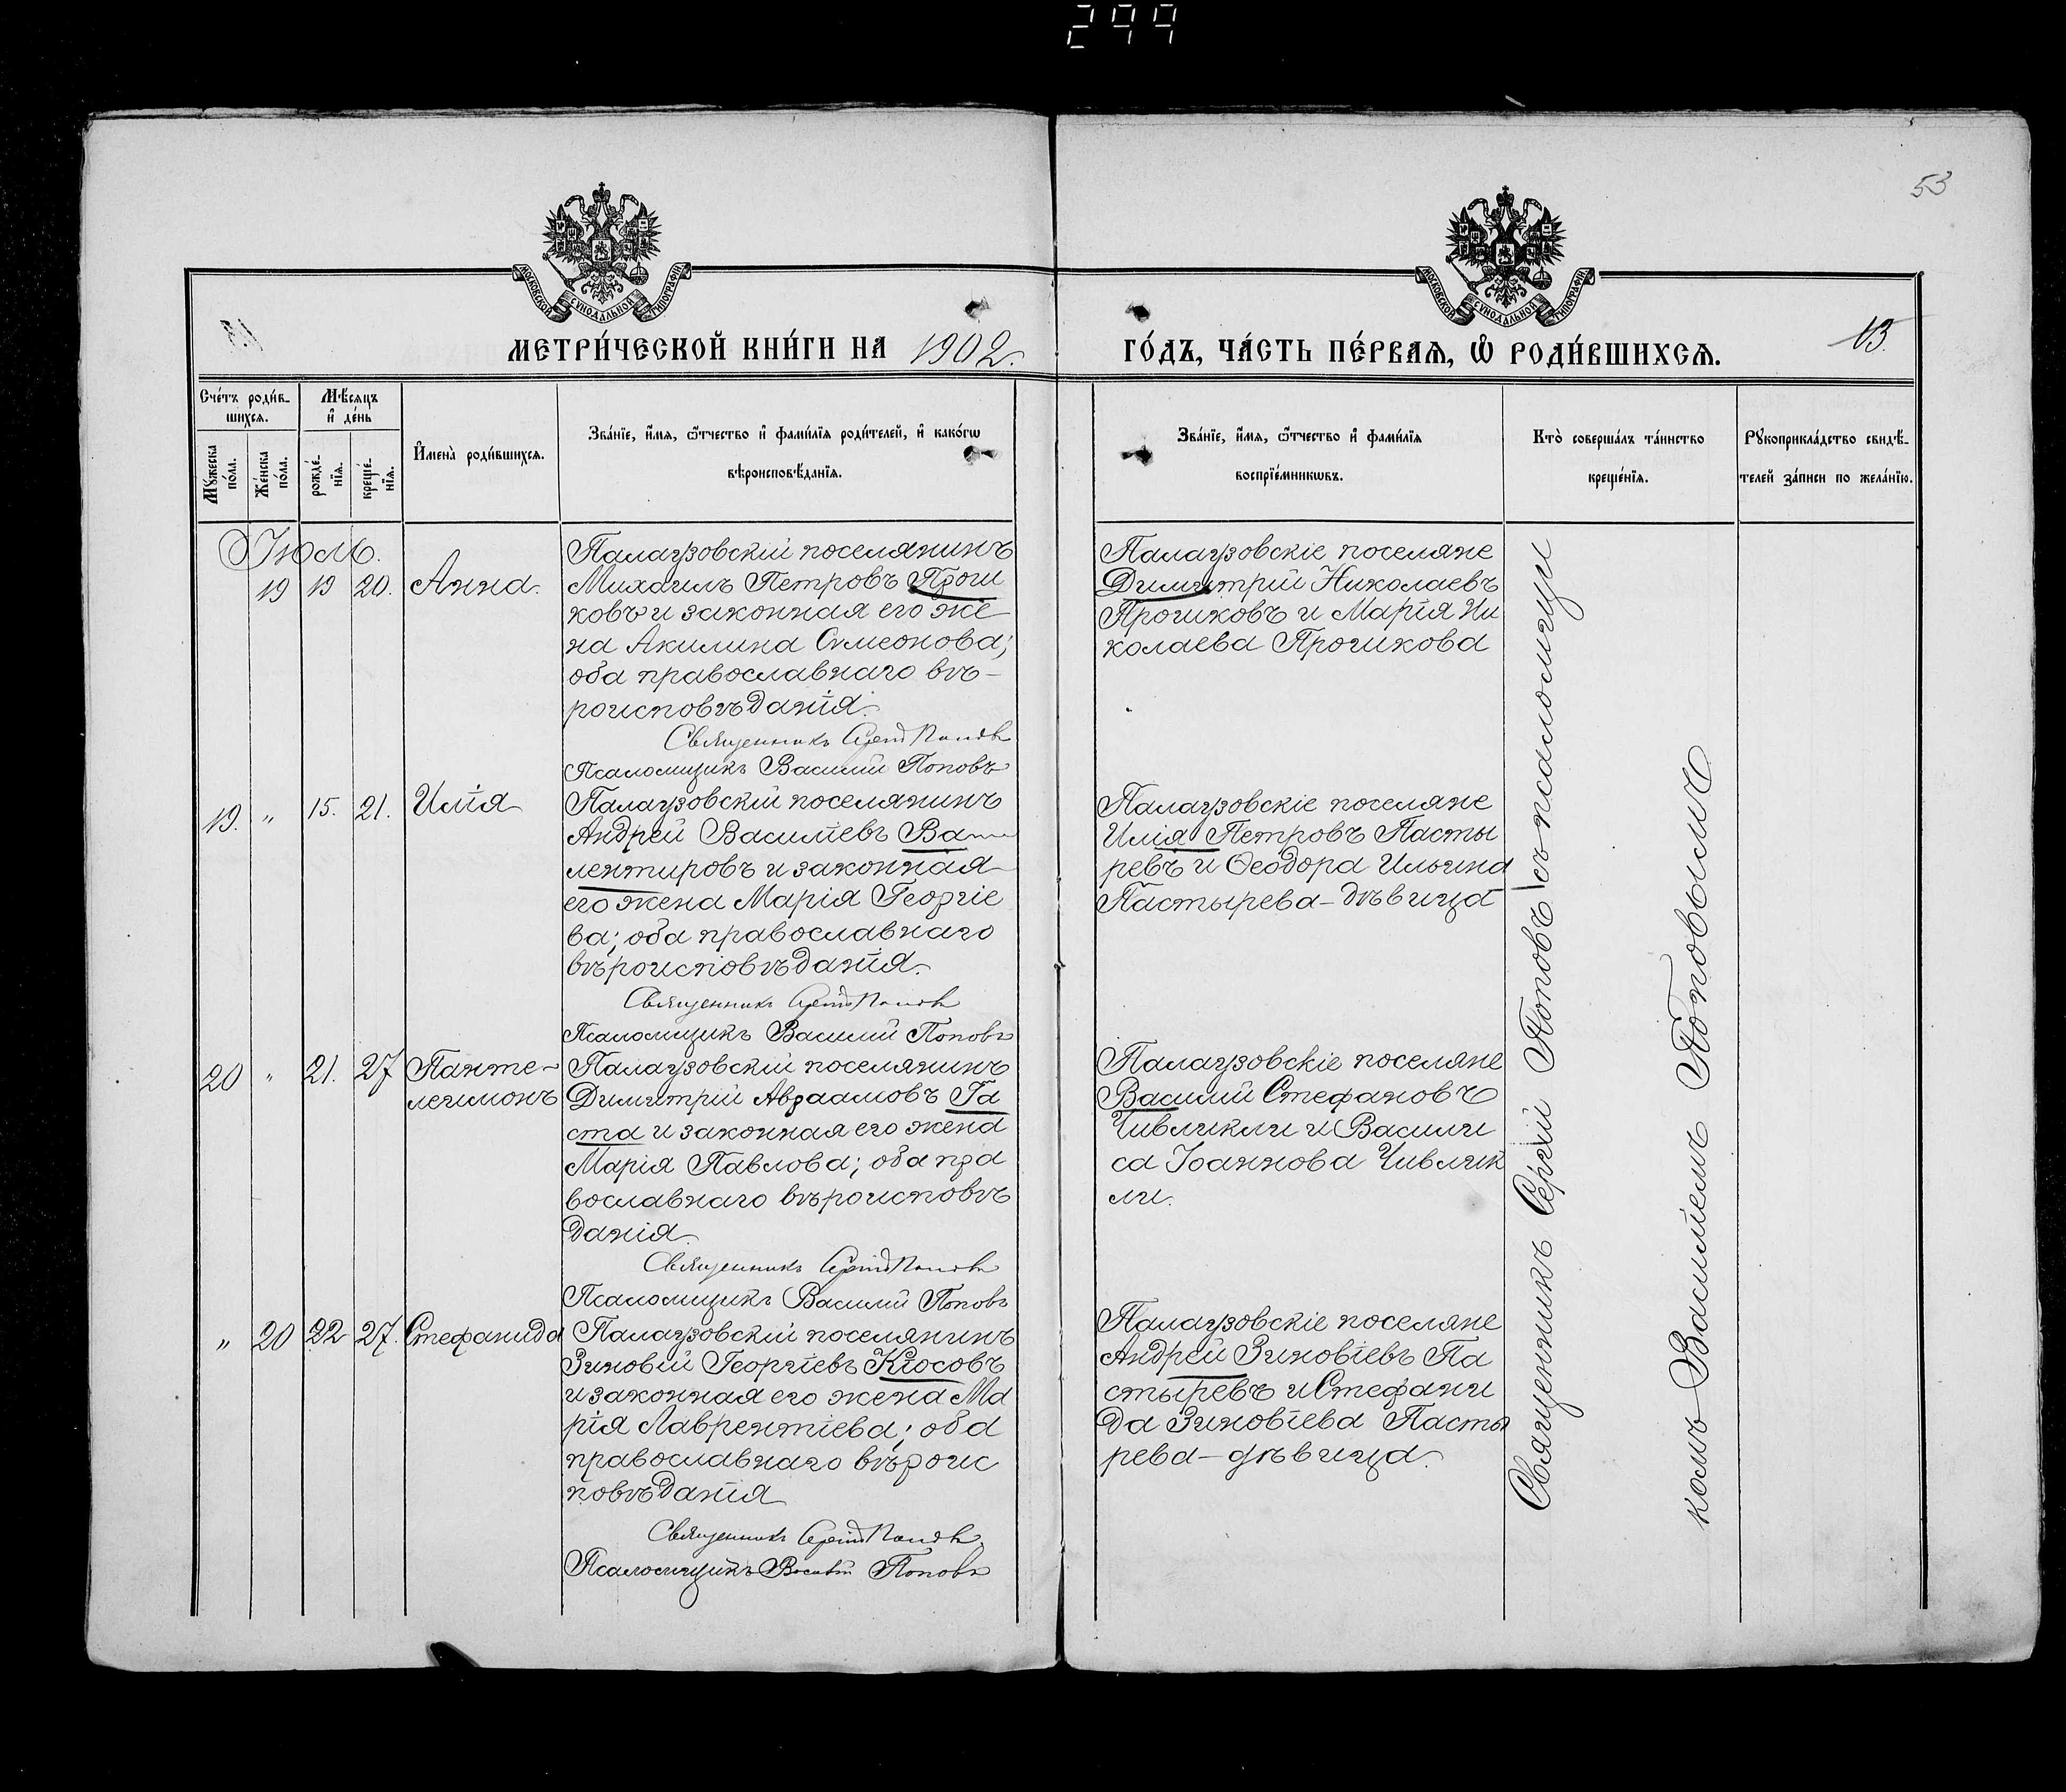 299
53
МОСКОВСКОЙ СѴНОДАЛЬНОЙ ТИПОГРАФІИ
МОСКОВСКОЙ СѴНОДАЛЬНОЙ ТИПОГРАФІИ
МЕТРИ́ЧЕСКОЙ КНИ́ГИ НА 1902.
ГО́ДЪ, ЧА́СТЬ ПЕ́РВАѦ, Ѡ҆ РОДИ́ВШИХСѦ.
13.
Сче́тъ роди́в-
шихсѧ.
Мѣ́сѧцъ
и҆ де́нь
Мꙋ́жеска
по́ла.
Же́нска
по́ла.
рожде́-
нїѧ.
креще́-
нїѧ.
И҆мена̀ роди́вшихсѧ.
Зва́нїе, и҆́мѧ, ѻ҆́тчество и҆ фамилїѧ роди́телей, и҆ како́гѡ
вѣроисповѣ́данїѧ.
Зва́нїе, и҆́мѧ, ѻ҆́тчество и҆ фами́лїѧ
воспрїе́мникѡвъ.
Кто̀ соверша́лъ та́инство
креще́нїѧ.
Рꙋкоприкла́дство свидѣ́-
телей за́писи по жела́нїю.
Іюль.
19 19 20. Анна.
Палаузовскій поселянинъ
Михаилъ Петровъ Прочи
ковъ и законная его же
на Акилина Сѵмеонова;
оба православнаго вѣ-
роисповѣданія.
Священникъ Сергій Поповъ
Псаломщикъ Василій Поповъ
Палаузовскіе поселяне
Димитрій Николаевъ
Прочиковъ и Марія Ни
колаева Прочикова
19. " 15. 21. Илія
Палаузовскій поселянинъ
Андрей Василіевъ Ва
лентировъ и законная
его жена Марія Георгіе
ва; оба православнаго
вѣроисповѣданія.
Священникъ Сергій Поповъ
Псаломщикъ Василій Поповъ
Палаузовскіе поселяне
Илія Петровъ Пасты
ревъ и Ѳеодора Ильина
Пастырева - дѣвица
20 " 21. 27 Панте-
леимонъ
Палаузовскій поселянинъ
Димитрій Авраамовъ Га
ста и законная его жена
Марія Павлова; оба пра
вославнаго вѣроисповѣ
данія.
Священникъ Сергій Поповъ
Псаломщикъ Василій Поповъ
Палаузовскіе поселяне
Василій Стефановъ
Чивликли и Васили
са Іоаннова Чивлик
ли.
" 20 22 27. Стефанида
Палаузовскій поселянинъ
Зиновій Георгіевъ Кіосовъ
и законная его жена Ма
рія Лаврентіева; оба
православнаго вѣроис
повѣданія
Священникъ Сергій Поповъ
Псаломщикъ Василій Поповъ
Палаузовскіе поселяне
Андрей Зиновіевъ Па
стыревъ и Стефани
да Зиновіева Пасты
рева - дѣвица.
Священникъ Сергій Поповъ съ псаломщи
комъ Василіемъ Поповымъ